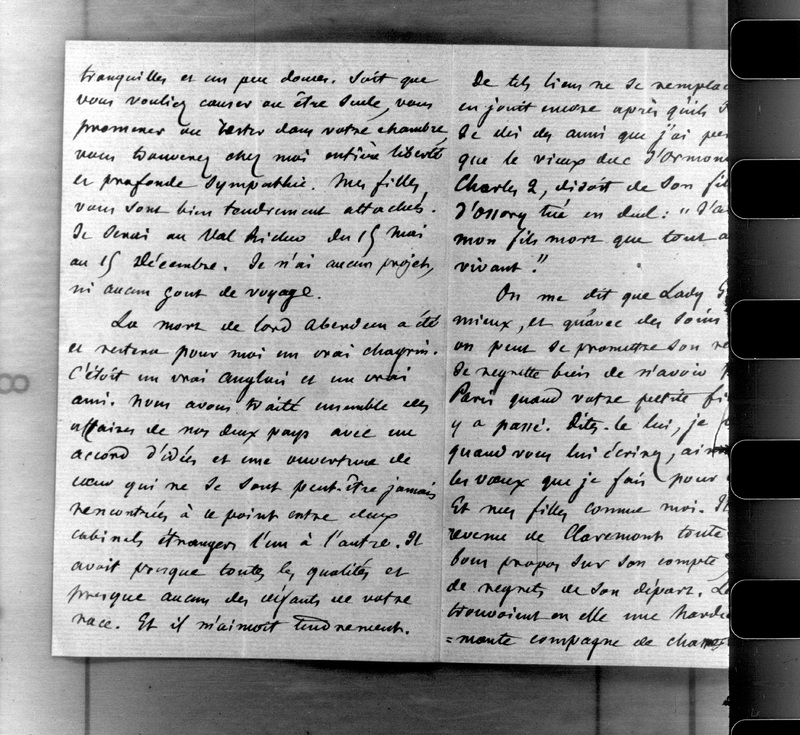 tranquilles et un peu douces. Soit que
vous vouliez causer ou être seule, vous
promener ou rester dans votre chambre,
vous trouverez chez moi entière liberté
et profonde sympathie. Mes filles
vous sont bien tendrement attachées.
Je serai au Val Richer du 15 mai
au 15 Décembre. Je n'ai aucun projet,
ni aucun gout de voyage.
La mort de lord Aberdeen a été
et restera pour moi un vrai chagrin.
C'étoit un vrai anglais et un vrai
ami. Nous avons traité ensemble des
affaires de nos deux pays avec un
accord d'idées et une ouverture de
cœur qui ne se sont peut-être jamais
rencontrées à ce point entre deux
cabinets étrangers l'un à l'autre. Il
avait presque toutes les qualités et
presque aucun des défauts de votre
race. Et il m'aimoit tendrement.
De tels liens ne se remplac
en jouit encore après qu'ils
Je dis des amis que j'ai per
que le vieux duc d'Ormon
Charles 2, disoit de son fil
d'Ossory tué en duel: "J'a
mon fils mort que tout a
vivant."
On me dit que Lady
mieux, et qu'avec des soins
on peut se promettre son re
Je regrette bien de n'avoir
Paris quand votre petite fi
y a passé. Dites-le lui, je
quand vous lui écrirez, ainsi
les vœux que je fais pour
Et mes filles comme moi.
revenu de Claremont toute
bons propos sur son compte
de regrets de son départ.
trouvoient en elle une hardi
=mante compagne de